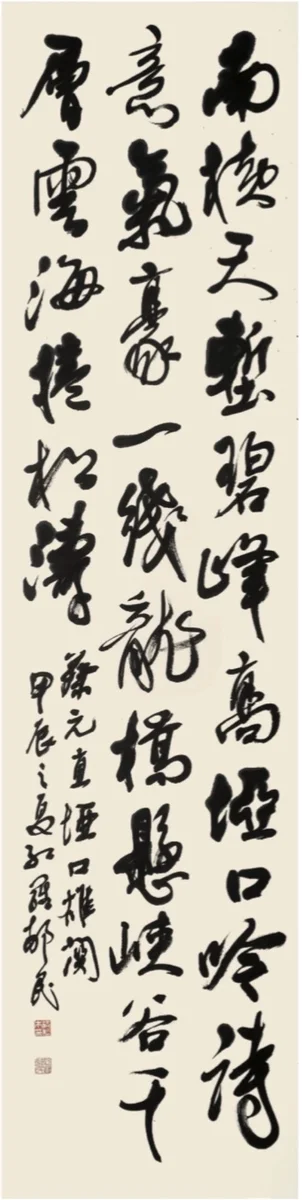 南横天塹碧峰高埡口吟詩
意氣豪一綫龍橋懸峽谷千
層雲海捲松濤
蔡元直埡口雄關
甲辰之夏民